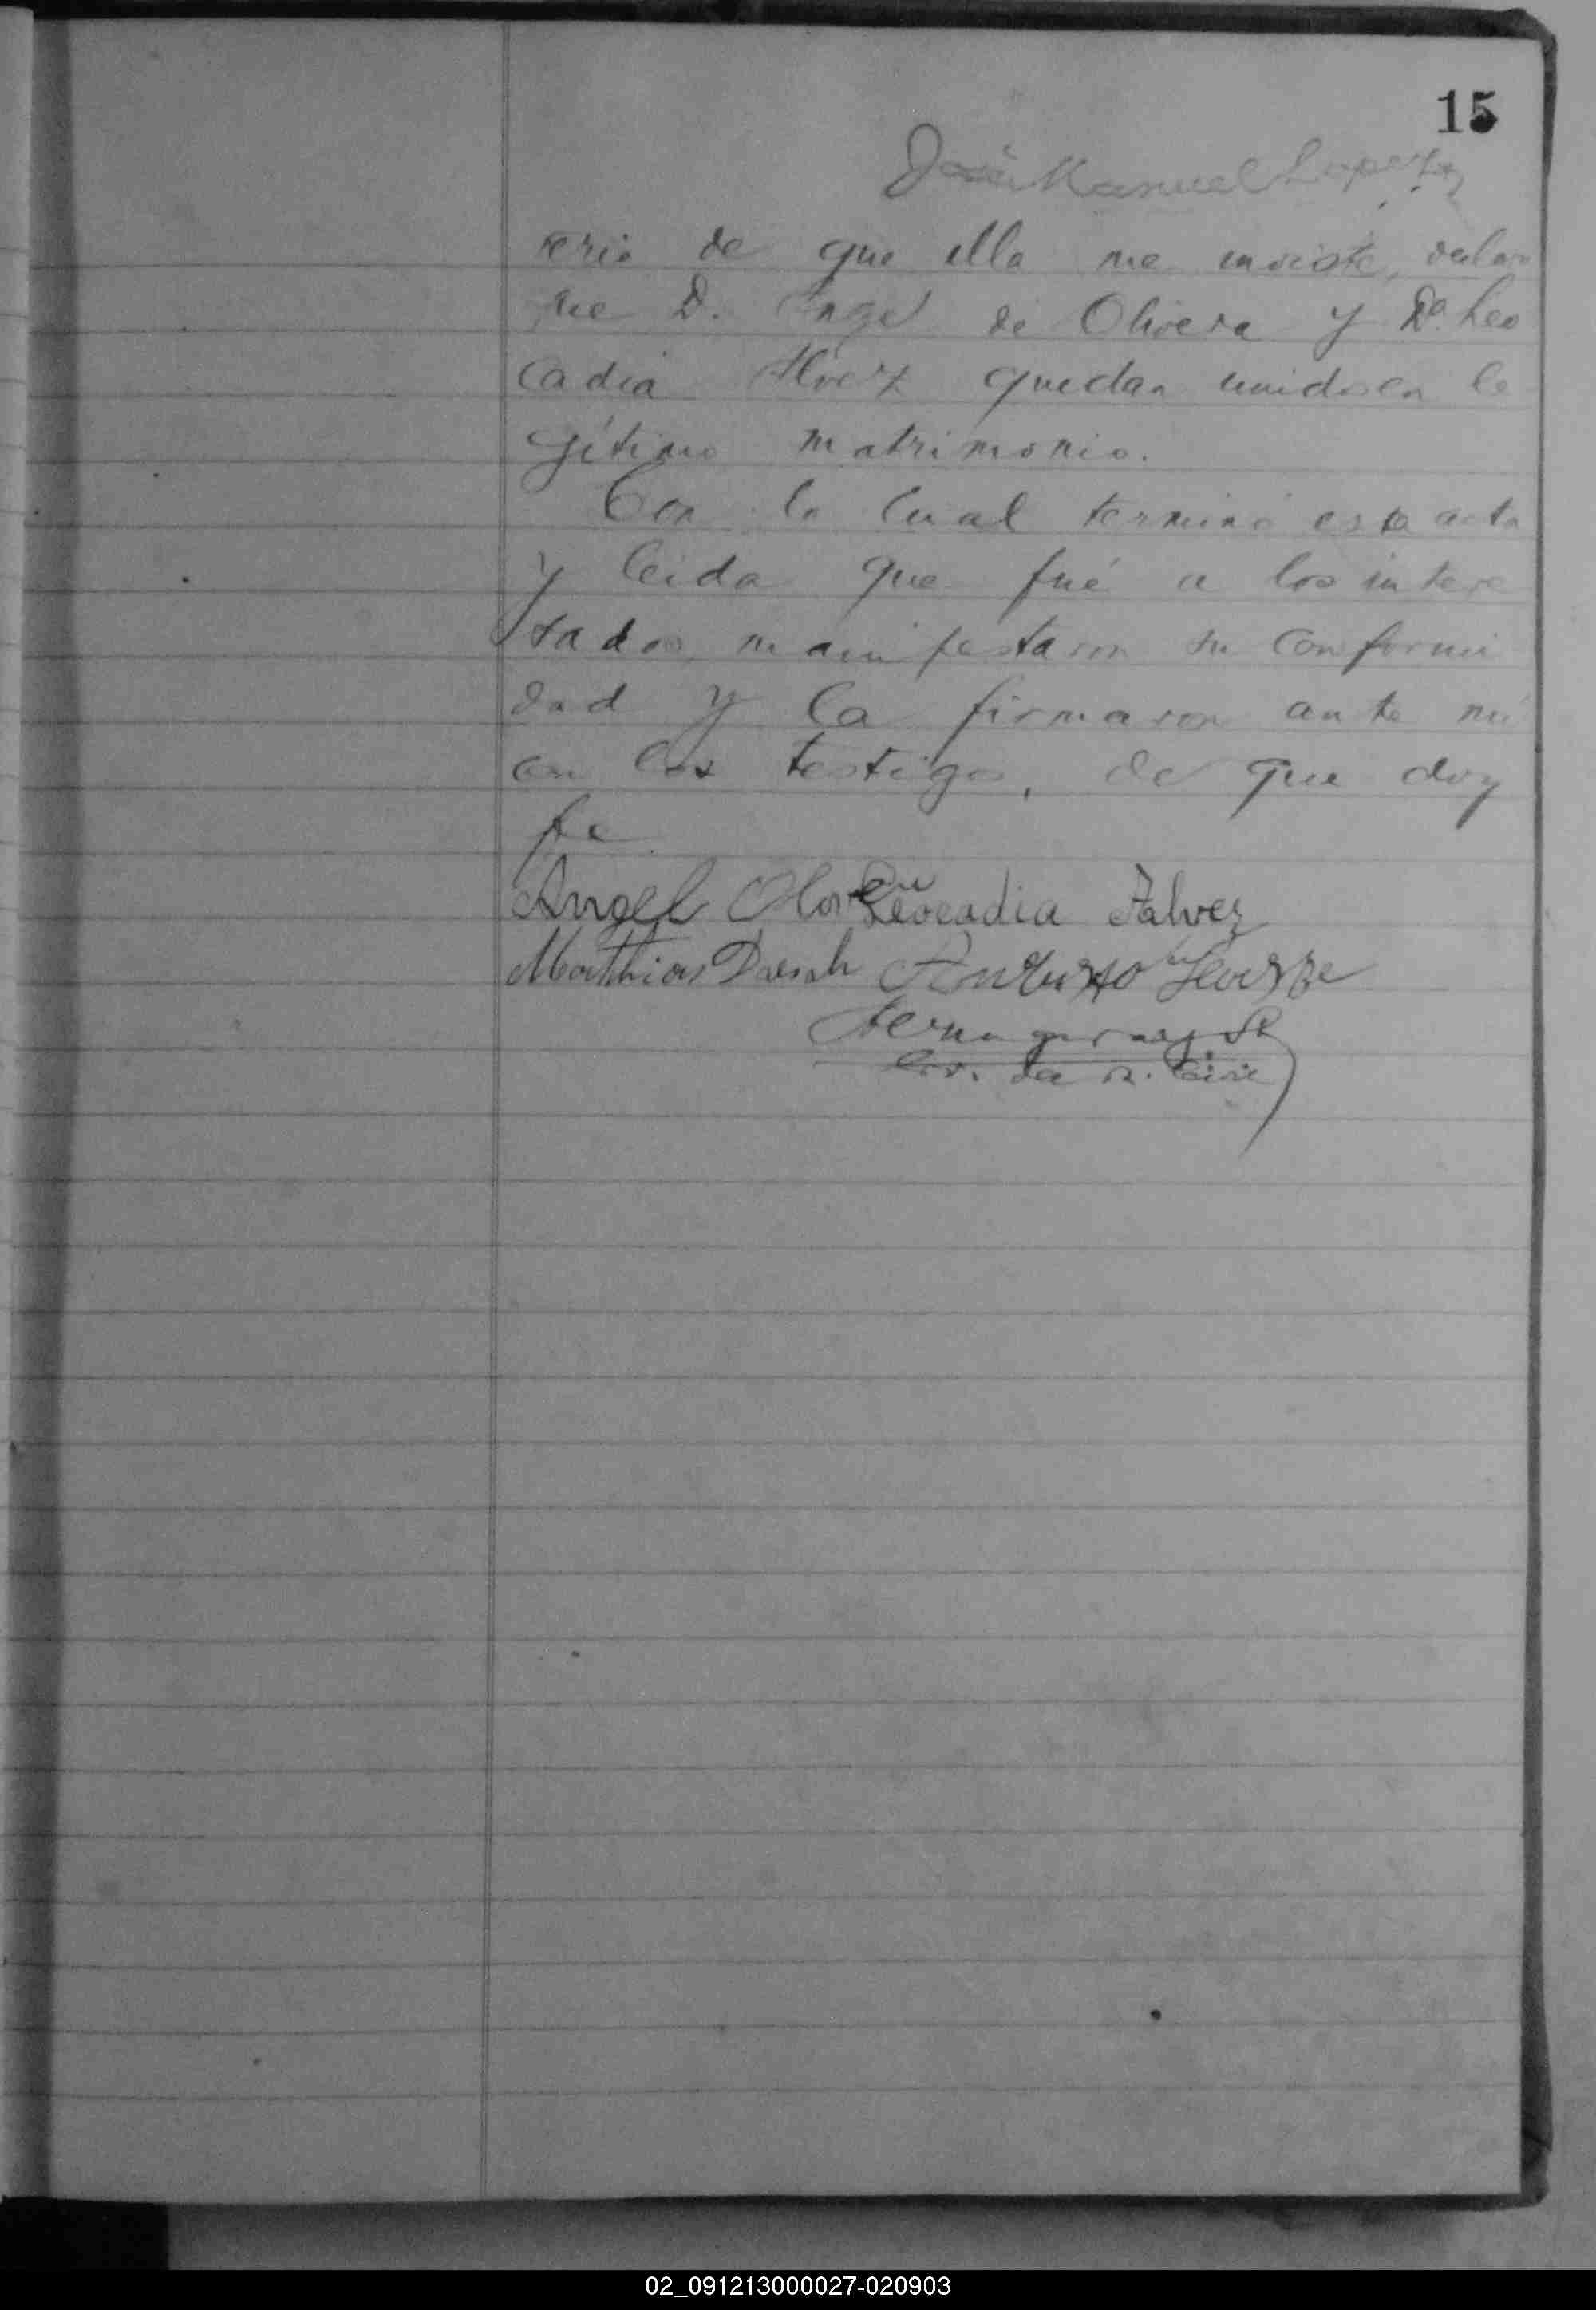 15
José Manuel Lopez
terio de que ella me inviste, declaro
que D. Angel de Olivera y Dª. Leo
cadia Alvez quedan unidos en le
gítimo matrimonio.
Con lo cual terminó esta acta
y leida que fué a los intere
sados, manifestaron su conformi
dad y la firmaron ante mi
con los testigos, de que doy
fe
Angel Leocadia Alvez
Matthias Augusto
02_091213000027-020903